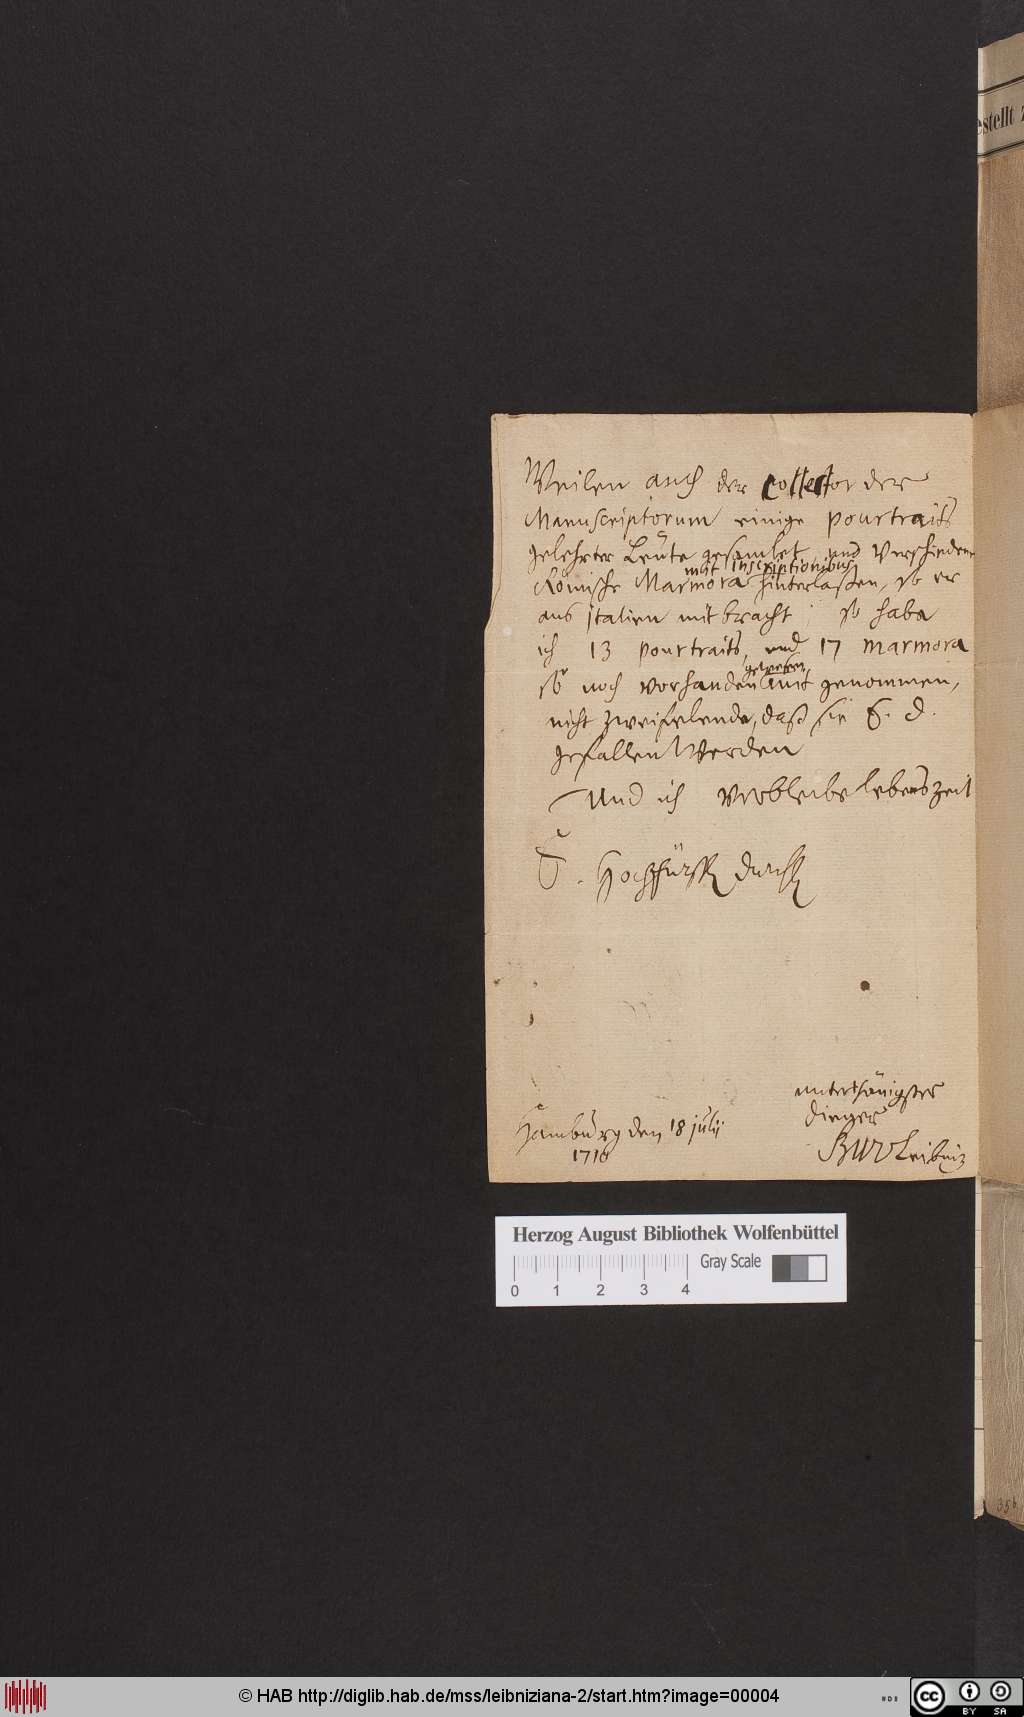 Weilen auch der collector der
Manuscriptorum einige pourtraits
gelehrter Leute gesamlet, und verschiedene
mit inscriptionibus
Römische Marmora hinterlaßen, so er
aus Italien mitbracht; so habe
ich 13 pourtraits, und 17 marmora
gewesen,
so noch vorhanden mit genommen,
nicht zweifelende, daß sie E. d.
gefallen werden
Und ich verbleibe lebenszeit
E. Hochfürstl durchl
unterthänigster
diener
Hamburg den 18 julii
1716
GWVLeibniz
Herzog August Bibliothek Wolfenbüttel
Gray Scale
0 1 2 3 4
estellt
356
© HAB http://diglib.hab.de/mss/leibniziana-2/start.htm?image=00004
cc BY SA